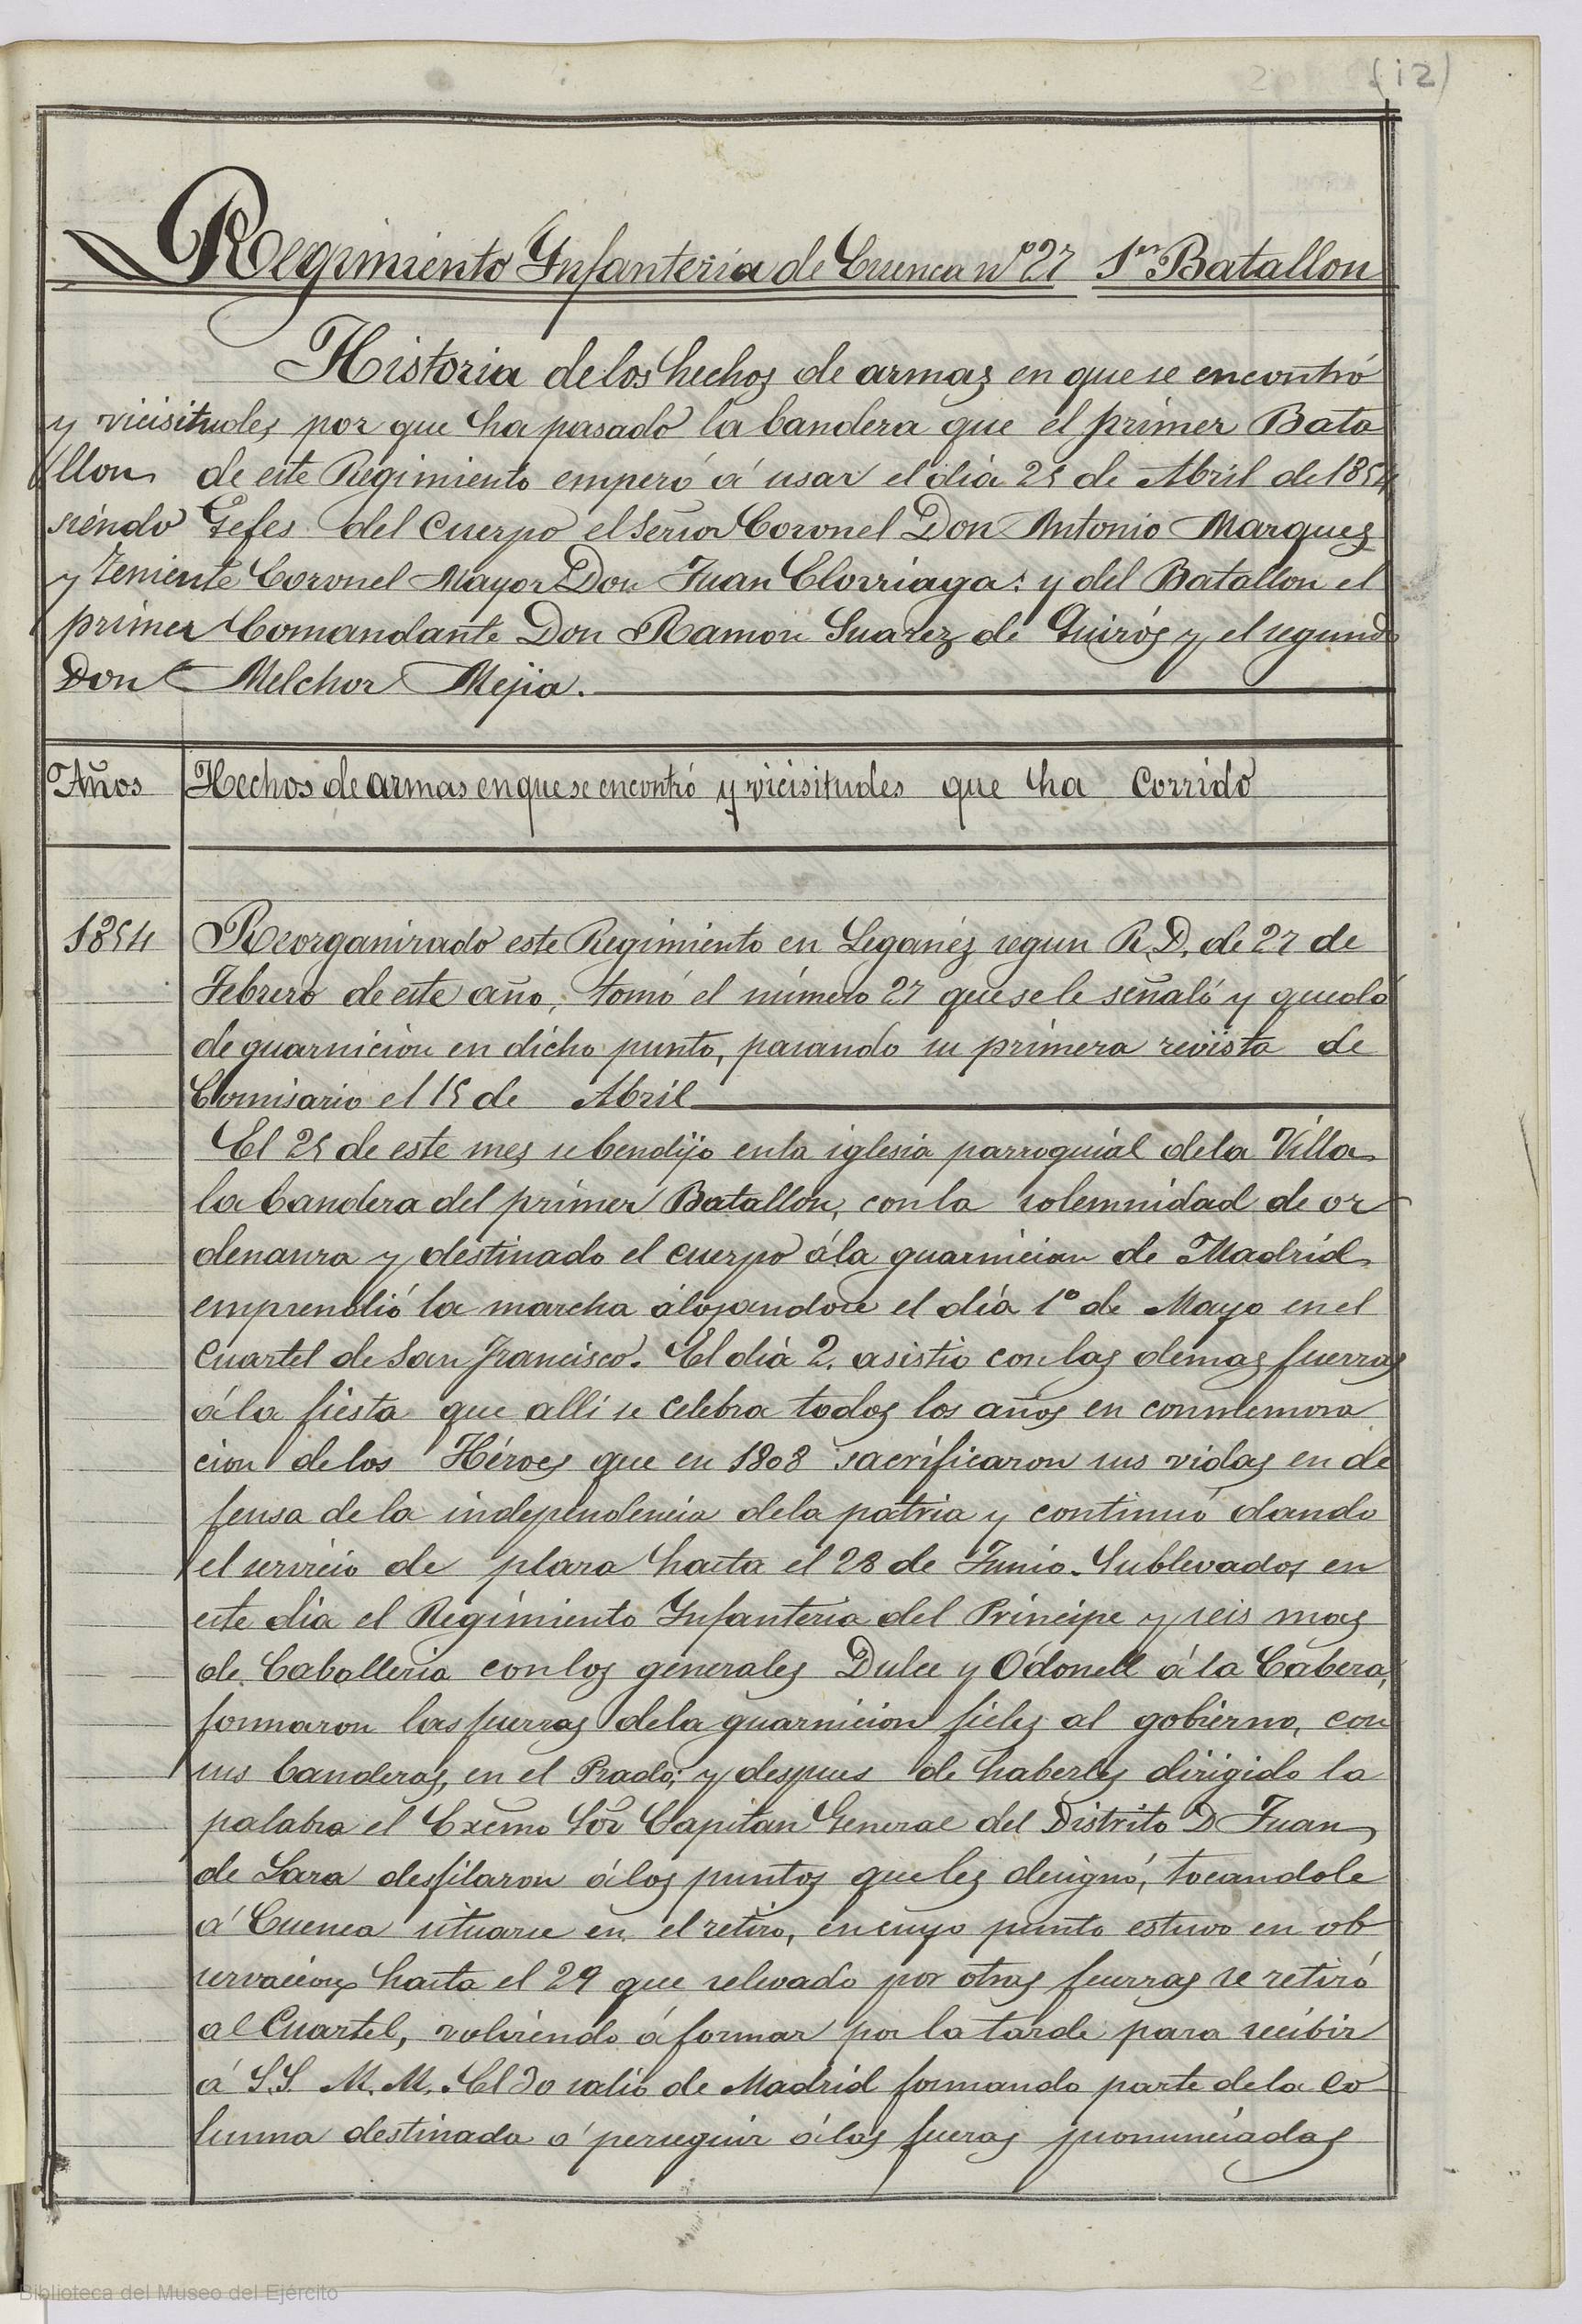 (12)
Regimiento Infanteria de Cuenca nº 27 1er Batallon
Historia de los hechos de armas en que se encontró
y vicisitudes por que ha pasado la bandera que el primer Bata
llon de este Regimiento empezó á usar el dia 25 de Abril de 1854
siendo Gefes del Cuerpo el Señor Coronel Don Antonio Marquez
y Teniente Coronel Mayor Don Juan Elorriaga: y del Batallon el
primer Comandante Don Ramon Suarez de Quirós y el segundo
Don Melchor Mejia.
Años Hechos de armas en que se encontró y vicisitudes que ha corrido
1854 Reorganizado este Regimiento en Leganéz segun R.D. de 27 de
Febrero de este año, tomó el número 27 que se le señaló y quedó
de guarnicion en dicho punto, pasando su primera revista de
Comisario el 15 de Abril
El 25 de este mes se bendijo en la iglesia parroquial de la Villa
la bandera del primer Batallon, con la solemnidad de or
denanza y destinado el cuerpo á la guarnician de Madrid
emprendió la marcha alojandose el día 1º de Mayo en el
Cuartel de San Francisco. El dia 2. asistio con las demas fuerzas
á la fiesta que alli se celebra todos los años en conmemora
cion de los Héroes que en 1808 sacrificaron sus vidas en de
fensa de la independencia de la patria y continuó dando
el servicio de plaza hasta el 28 de Junio. Sublevados en
este dia el Regimiento Infanteria del Principe y seis mas
de Caballeria con los generales Dulce y Odonell á la Cabeza,
formaron las fuerzas de la guarnicion fieles al gobierno, con
sus banderas, en el Prado; y despues de haberles dirigido la
palabra el Excmo Sor Capitan General del Distrito D Juan
de Lara desfilaron á los puntos que les designó, tocandole
á Cuenca situarse en el retiro, en cuyo punto estuvo en ob
servacion hasta el 29 que relevado por otras fuerzas se retiró
al Cuartel, volviendo á formar por la tarde para recibir
á S.S. M.M. El 30 salió de Madrid formando parte de la co
lumna destinada á perseguir á las fueras pronunciadas
Biblioteca del Museo del Ejército